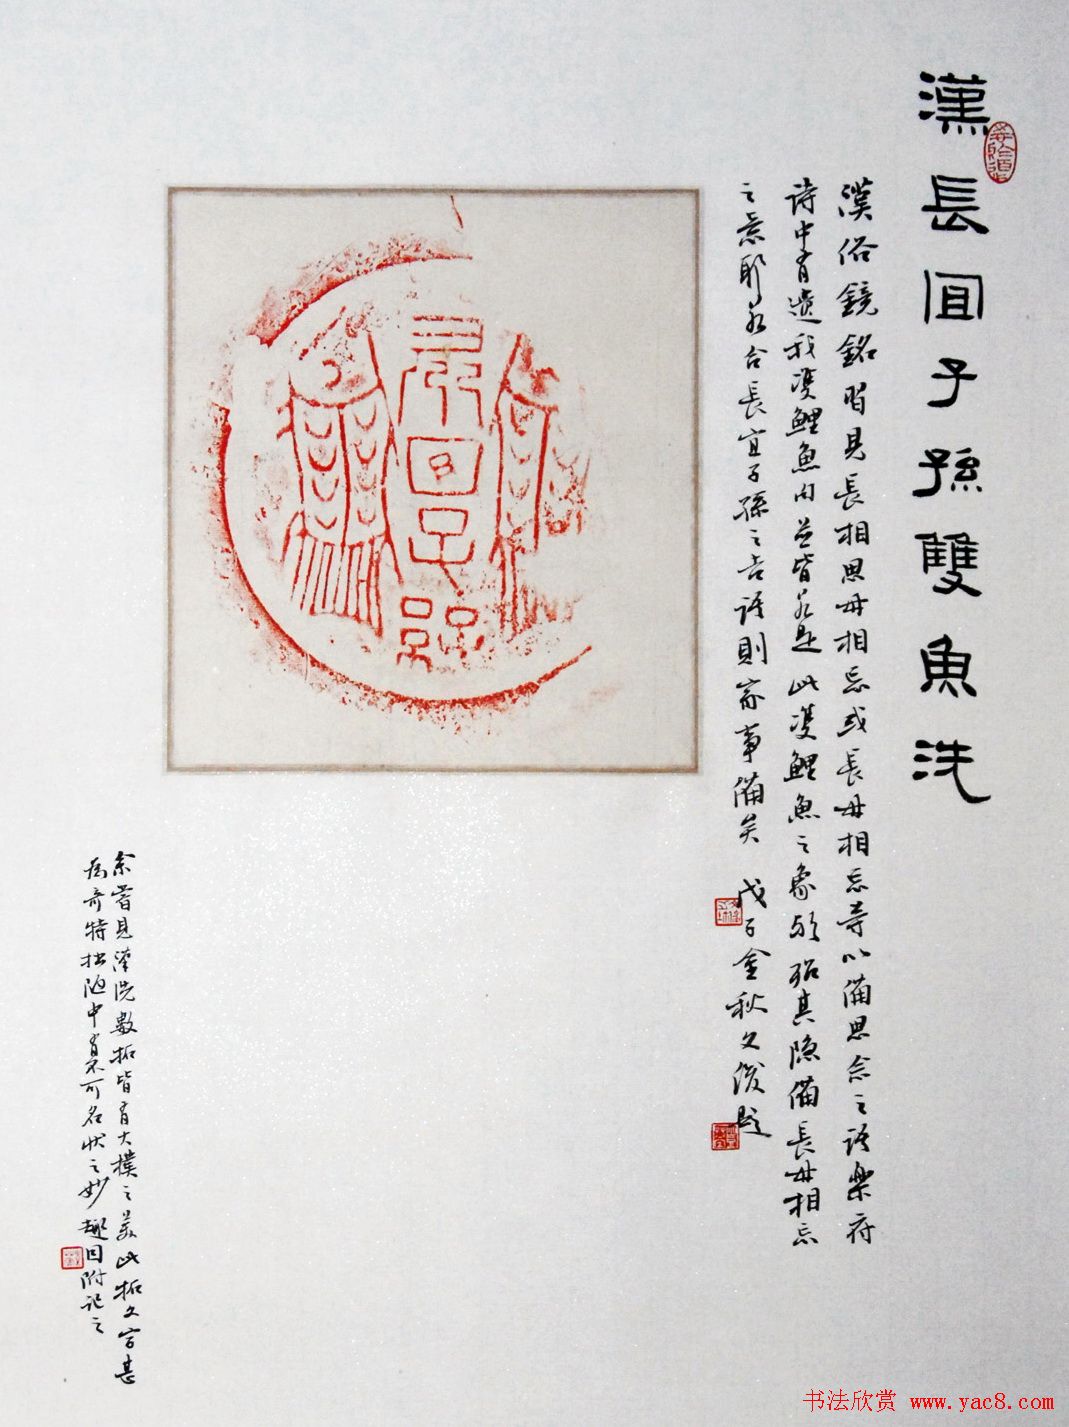 漢長宜子孫雙魚洗
漢俗鏡銘習見長相思毋相忘或長毋相忘等以備思念之語樂府
詩中有遺我雙鯉魚內並皆如是此雙鯉魚之象於殆其隐備長毋相忘
之意耶如合長宜子孫之吉語則家事備矣 戊子金秋文俊題
長宜子孫
余嘗見漢洗數拓皆有大樸之美此拓文字甚
為奇特拙陋中有不可名狀之妙趣因附記之
书法欣赏 www.yac8.com